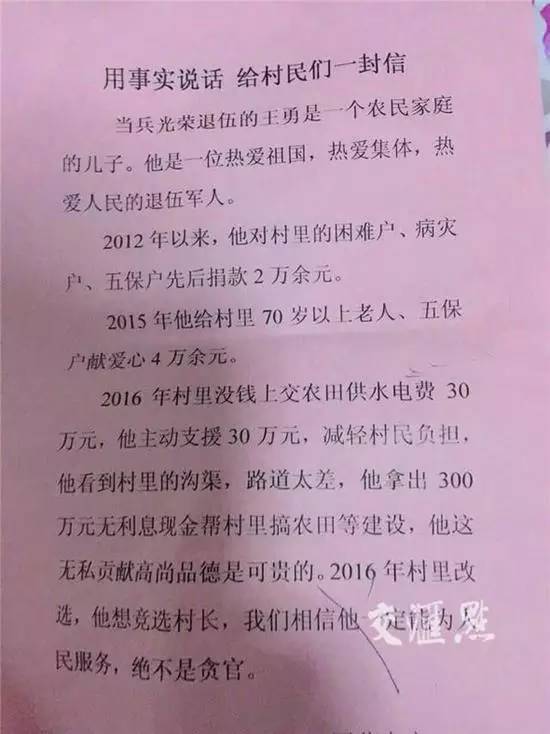 用事实说话 给村民们一封信
当兵光荣退伍的王勇是一个农民家庭
的儿子。他是一位热爱祖国，热爱集体，热
爱人民的退伍军人。
2012年以来，他对村里的困难户、病灾
户、五保户先后捐款2万余元。
2015年他给村里70岁以上老人、五保
户献爱心4万余元。
2016年村里没钱上交农田供水电费30
万元，他主动支援30万元，减轻村民负担，
他看到村里的沟渠，路道太差，他拿出300
万元无利息现金帮村里搞农田等建设，他这
无私贡献高尚品德是可贵的。2016年村里改
选，他想竞选村长，我们相信他一定能为人
民服务，绝不是贪官。
交汇点